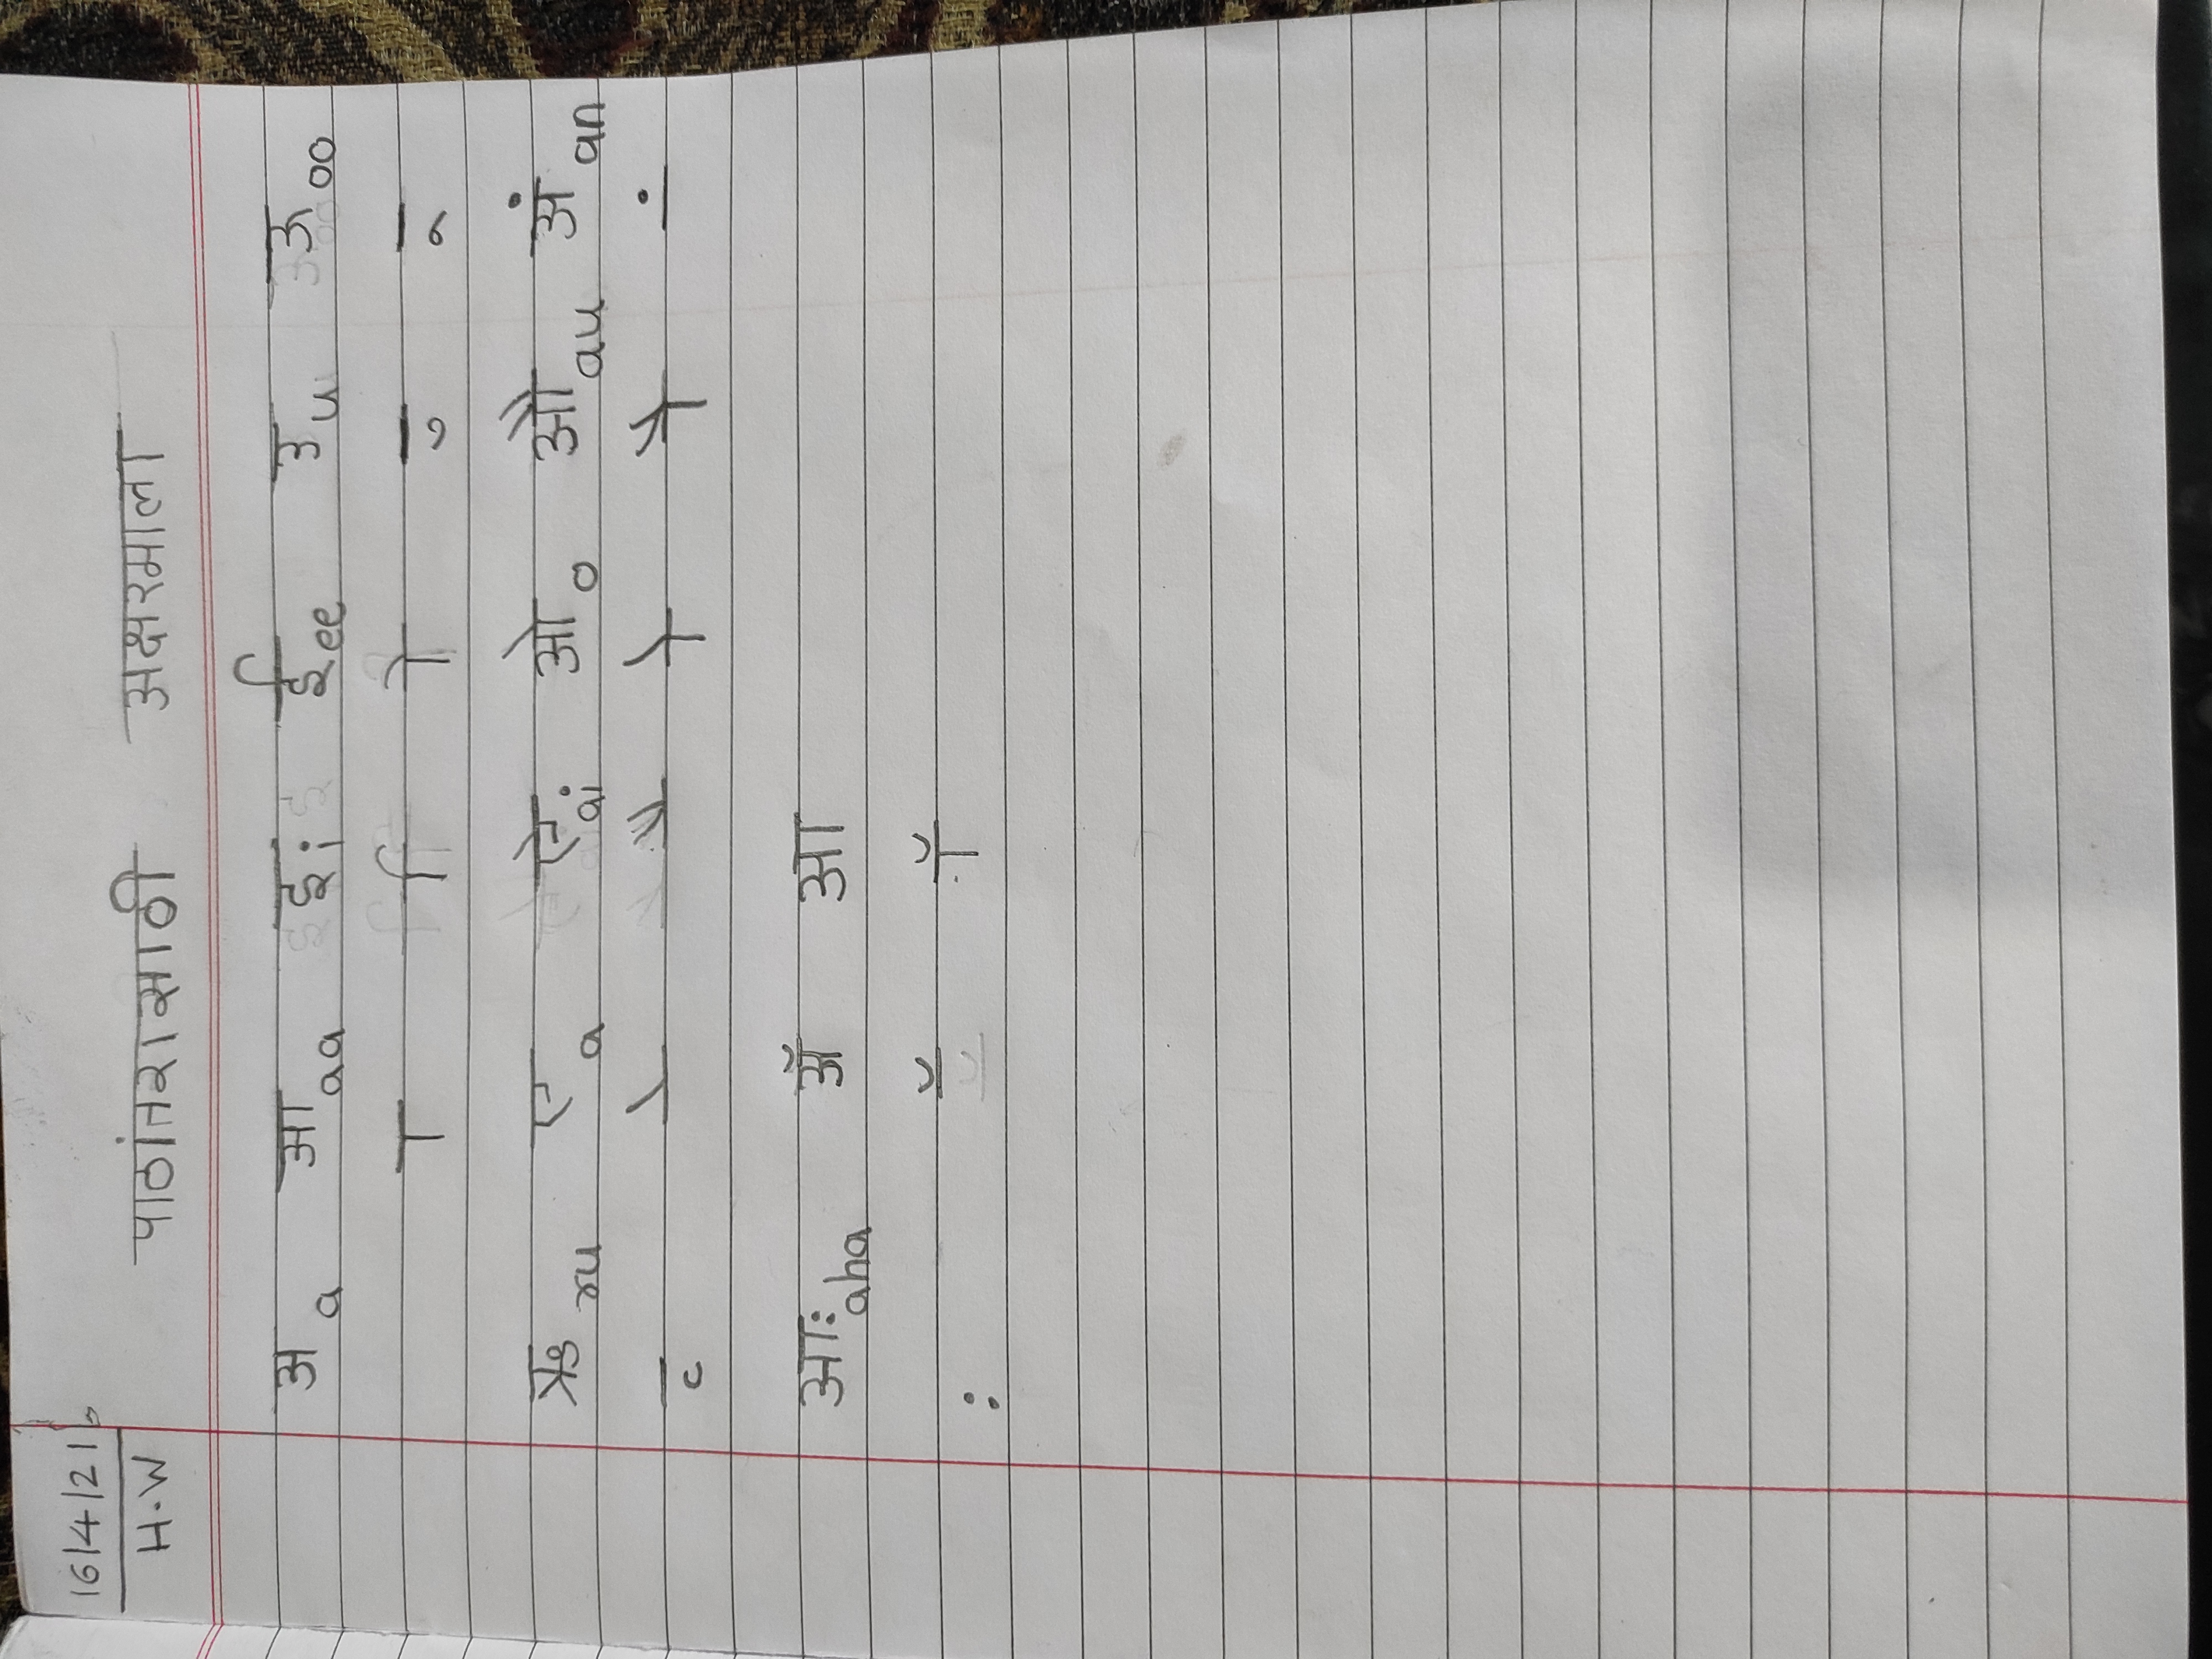 16/4/21
H.W
पाठांतरासाठी अक्षरमाला
अ a आ aa इ i ई ee उ u ऊ oo
ा ि ी ु ू
ऋ ru ए a ऐ ai ओ o औ au अं an
ृ े ै ो ौ ं
आः aha ॲ आ
ः ॅ ॉ